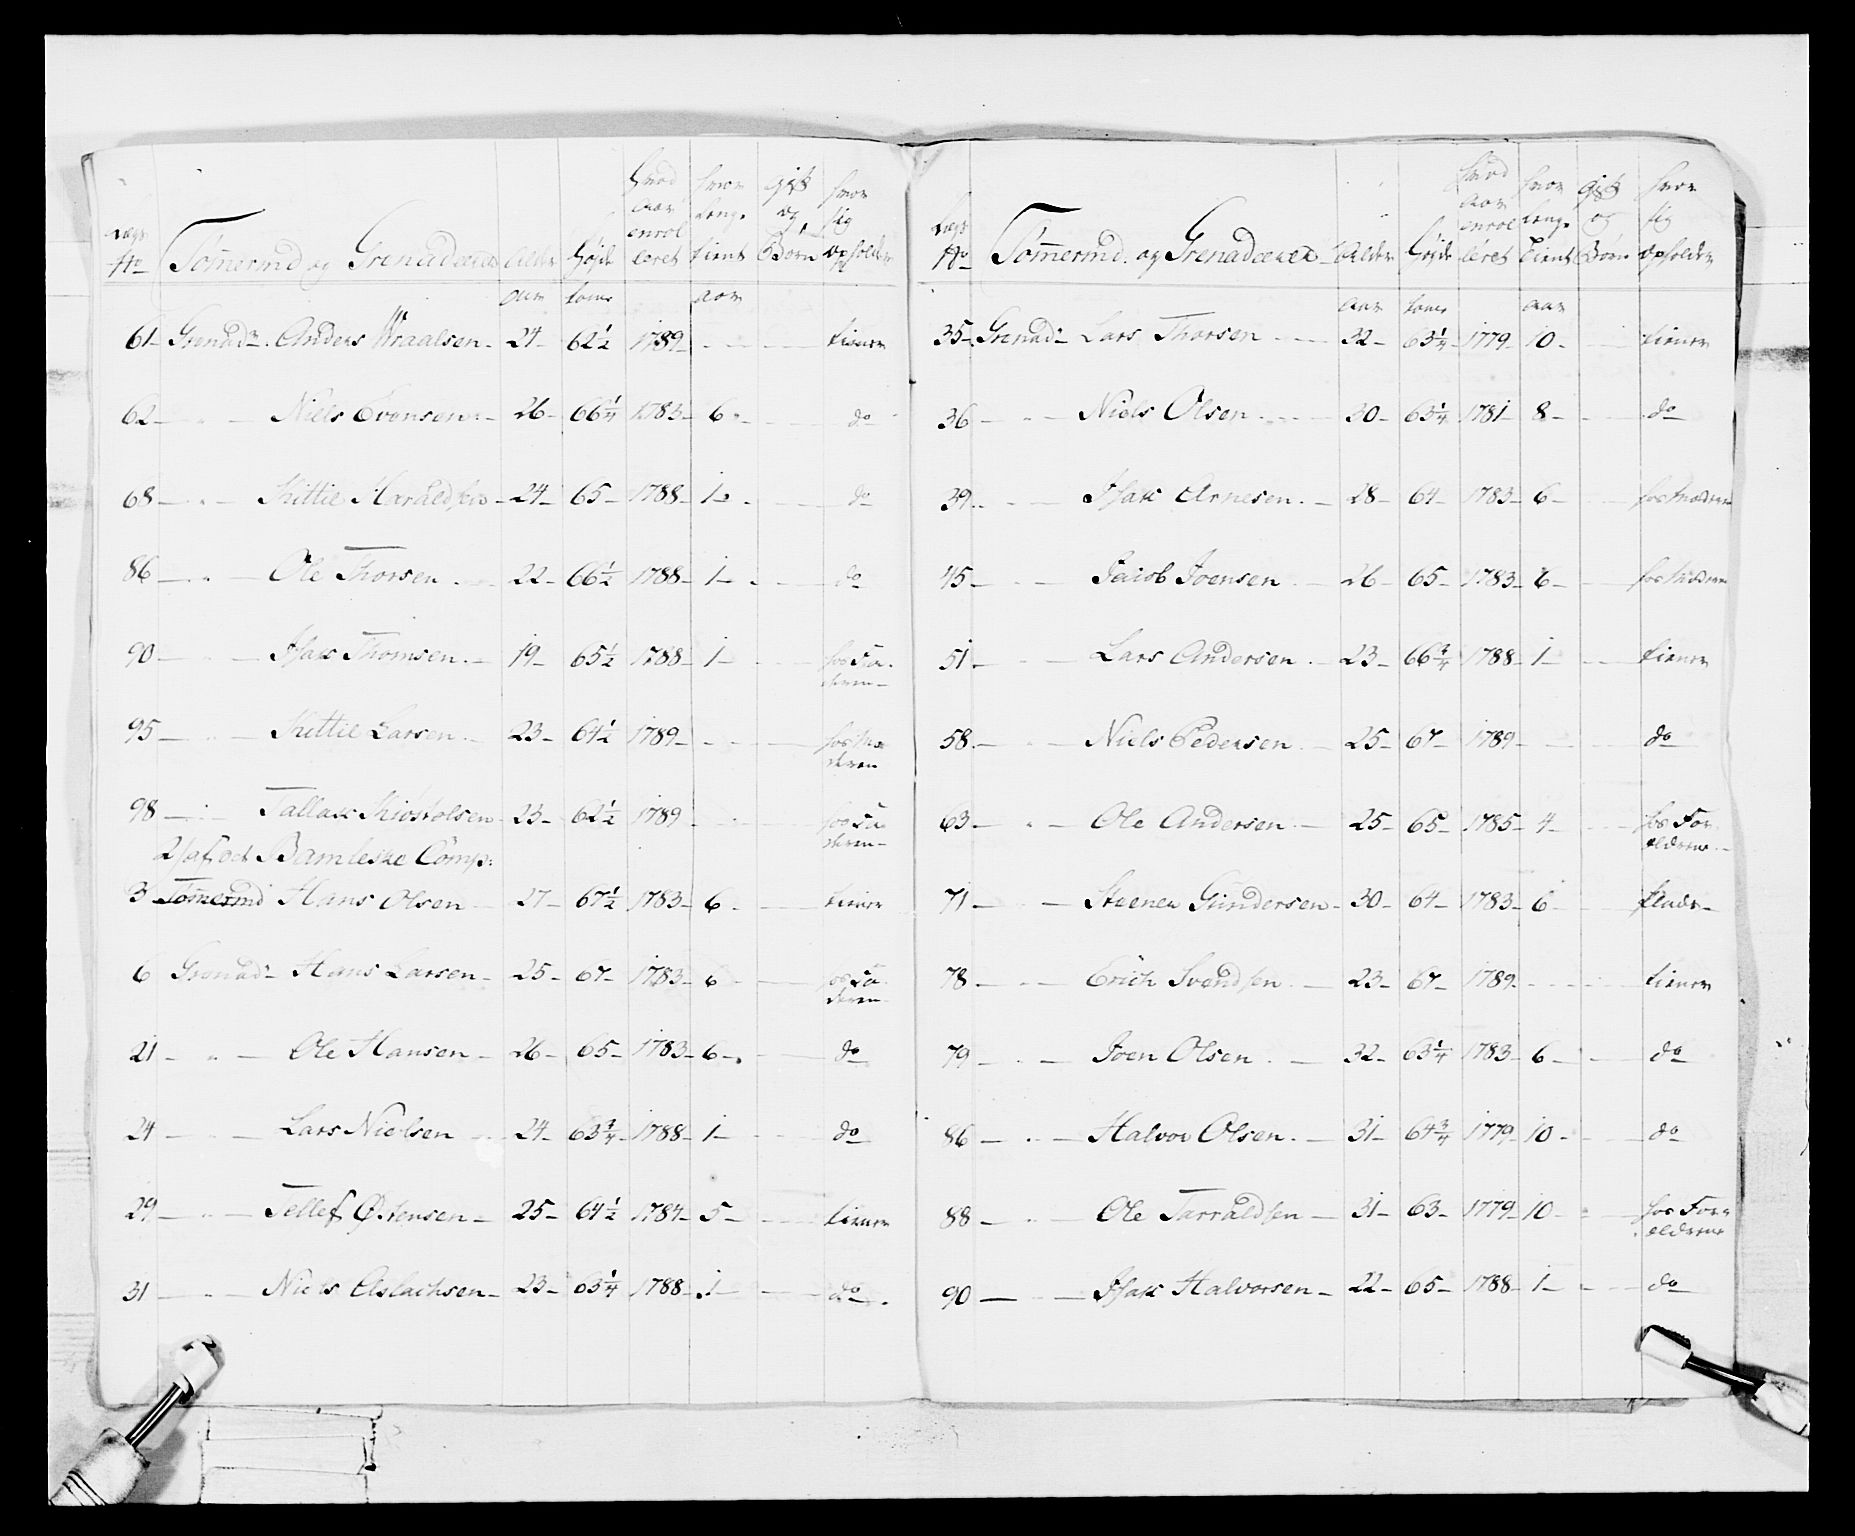 Lægs No | Tømermd og Grenaderer | Alder | Højde | hvad Aar enrolleret | hvor lenge tient | Gift og Børn | hvor sig opholder
aar | tomr | aar
61 Grenadr. Anders Wraalsen 24 62½ 1789 tiener
62 " Niels Evensen 26 66¼ 1783 6 do
68 " Kittil Haraldsen 24 65 1788 1 do
86 " Ole Thorsen 22 66½ 1788 1 do
90 " Isak Thomsen 19 65½ 1788 1 hos Fa-
deren
95 " Kittil Larsen 23 64½ 1789 hos Mo
deren
98 " Tallak Kiøstolsen 23 62½ 1789 hos Fa
deren
2/ af det Bamleske Comp:
3 Tømermd Hans Olsen 27 67½ 1783 6 tiener
6 Grenadr Hans Larsen 25 67 1783 6 hos Fa-
deren
21 " Ole Hansen 26 65 1783 6 do
24 " Lars Nielsen 24 63¾ 1788 1 do
29 " Tellef Østensen 25 64½ 1784 5 tiener
31 " Niels Aslachsen 23 63¼ 1788 1 do
Lægs No | Tømermd. og Grenaderer | Alder | Højde | hvad Aar enrolleret | hvor lenge tient | Gift og Børn | hvor sig opholder
aar | tomr | aar
35 Grenadr Lars Thorsen 32 63¼ 1779 10 tiener
36 " Niels Olsen 30 63¼ 1781 8 do
39 " Isak Arnesen 28 64 1783 6 hos Moderen
45 " Jacob Joensen 26 65 1783 6 hos Moderen
51 " Lars Andersen 23 66¾ 1788 1 tiener
58 " Niels Pedersen 25 67 1789 do
63 " Ole Andersen 25 65 1785 4 hos For-
ældrene
71 " Steener Gundersen 30 64 1783 6
78 " Erich Svendsen 23 67 1789 tiener
79 " Joen Olsen 32 63¼ 1783 6 do
86 " Halvor Olsen 31 64¾ 1779 10 do
88 " Ole Tarraldsen 31 63 1779 10 hos For-
ældrene
90 " Isak Halvorsen 22 65 1788 1 do